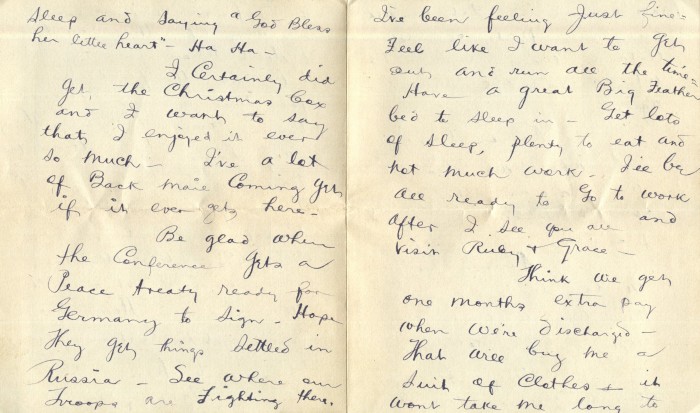 sleep and saying "God Bless
her little heart" - Ha Ha -
I Certainly did
get the Christmas box
and I want to say
that I enjoyed it ever
so much - I've a lot
of Back mail Coming yet
if it ever gets here -
Be glad when
the Conference gets a
Peace treaty ready for
Germany to sign - Hope
they get things settled in
Russia - See where our
Troops are Fighting there.
I've been feeling Just fine -
Feel like I want to get
out and run all the time -
Have a great Big Feather
bed to sleep in - Get lots
of sleep, plenty to eat and
not much work - I'll be
all ready to Go to work
after I see you all and
visit Ruby + Grace -
Think we get
one months extra pay
when we're discharged -
That will buy me a
suit of Clothes + it
wont take me long to